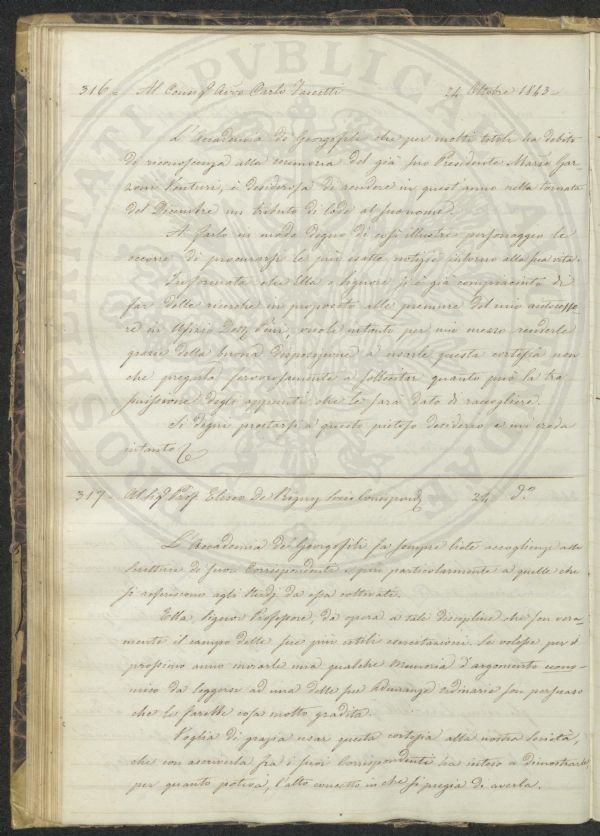 316 = Al Consre Avv. Carlo 24 Ottobre 1843 =
L'Accademia de Georgofili che per molti titoli ha debito
di riconoscenza alla memoria del già suo Presidente Mario Gar=
zoni Venturi, è desiderosa di rendere in quest'anno nella tornata
del Dicembre un tributo di lode al suo nome.
A farlo in modo degno di così illustre personaggio le
occorre di procurarsi le più esatte notizie intorno alla sua vita.
Informata che Ella o Signore si è già compiaciuto di
far delle ricerche in proposito alle premure del mio antecesso=
re in Ufizio Dott., vuole intanto per mio mezzo renderle
grazie della buona disposizione a usarle questa cortesia non
che pregarla fervorosamente a sollecitar quanto può la tra
smissione degli appunti che le sarà dato di raccogliere.
Si degni prestarsi a questo pietoso desiderio e mi creda
intanto
317 = Al Sigr Prof. Eliseo De Regny Socio Corrispond. 24 do
L'Accademia de Georgofili fa sempre liete accoglienze alle
scritture di suoi Corrispondenti e più particolarmente a quelle che
si riferiscono agli Studj da essa coltivati.
Ella, Signor Professore, dà opera a tali discipline che son vera=
mente il campo delle sue più utili esercitazioni. Se volesse per il
prossimo anno inviarle una qualche Memoria d'argomento econo=
mico da leggersi ad una delle sue Adunanze ordinarie son persuaso
che le farebbe cosa molto gradita.
Voglia di grazia usar questa cortesia alla nostra Società,
che con ascriverla fra i suoi Corrispondenti ha inteso a dimostrarle
per quanto poteva, l'alto concetto in che si pregia di averla.
PROSPERITATI PUBLICAE AUGENDAE